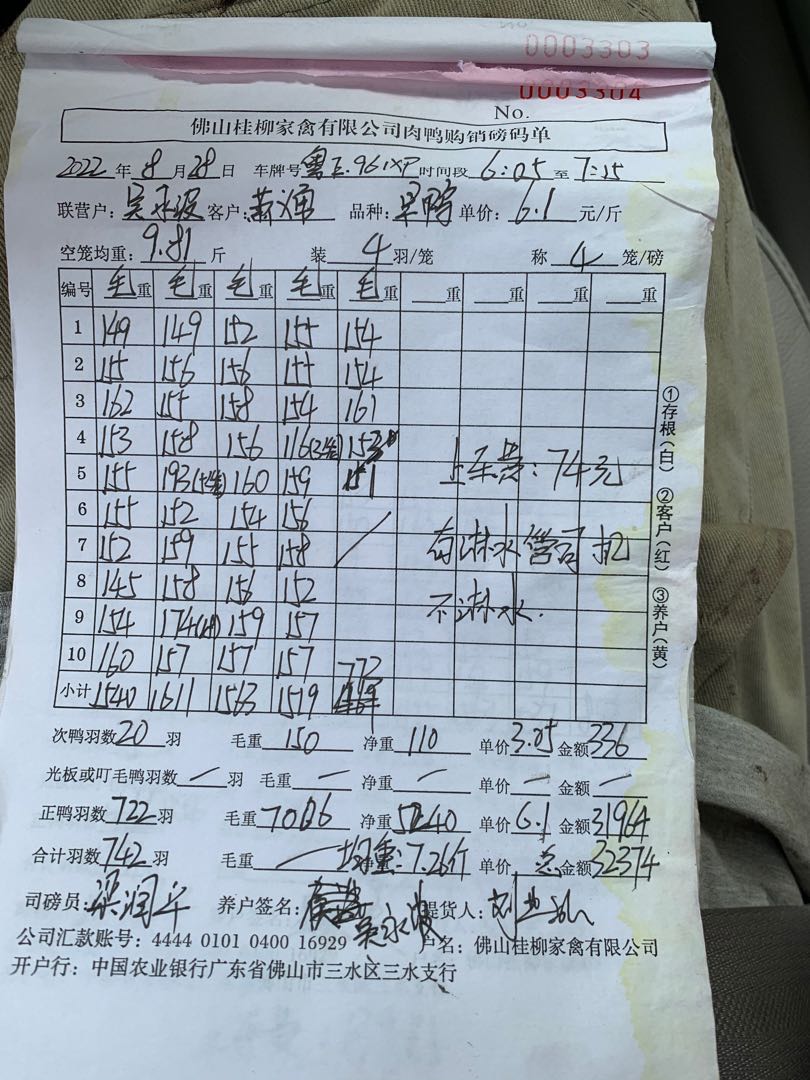 0003303
0003304
No.
佛山桂柳家禽有限公司肉鸭购销磅码单
2022年8月28日 车牌号 时间段6:05至7:15
联营户:吴永波 客户: 品种: 单价:6.1元/斤
空笼均重:9.81斤 装4羽/笼 称4笼/磅
编号 毛重 毛重 毛重 毛重 毛重 重 重 重 重
1 149 149 152 155 154
2 155 156 156 155 154
3 162 155 158 154 161
4 153 158 156 116(3笼) 153
5 155 193(5笼) 160 159 151
6 155 152 154 156
7 152 159 155 158
8 145 158 156 152
9 154 174 159 157
10 160 157 157 157
小计 1540 1611 1563 1519 772
上车费:74元
有淋水管司机
不淋水.
①存根(白) ②客户(红) ③养户(黄)
次鸭羽数20羽 毛重150 净重110 单价3.05 金额336
光板或叮毛鸭羽数/羽 毛重/ 净重/ 单价/ 金额/
正鸭羽数722羽 毛重7006 净重5240 单价6.1 金额31964
合计羽数742羽 毛重/ 净重 均重:7.26斤 单价 总金额32374
司磅员:梁润华 养户签名: 吴永波 提货人:
公司汇款账号:4444 0101 0400 16929 户名:佛山桂柳家禽有限公司
开户行:中国农业银行广东省佛山市三水区三水支行